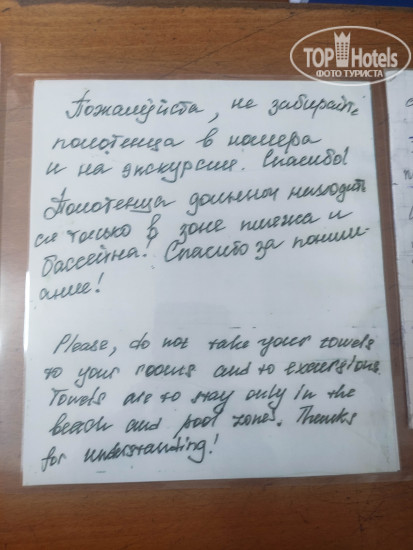 TOP Hotels
ФОТО ТУРИСТА
Пожалуйста, не забирайте
полотенца в номера
и на экскурсии. Спасибо!
Полотенца должны находить
ся только в зоне пляжа и
бассейна! Спасибо за поним-
ание!
Please, do not take your towels
to your rooms and to excursions.
Towels are to stay only in the
beach and pool zones. Thanks
for understanding!